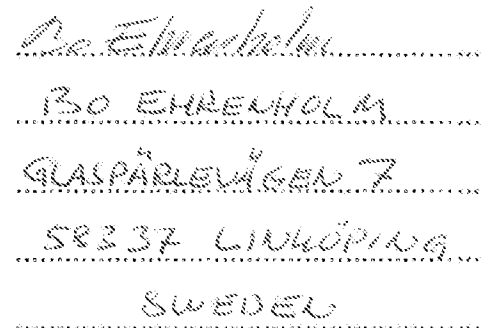 Bo Ehrenholm
BO EHRENHOLM
GLASPÄRLEVÄGEN 7
583 37 LINKÖPING
SWEDEN